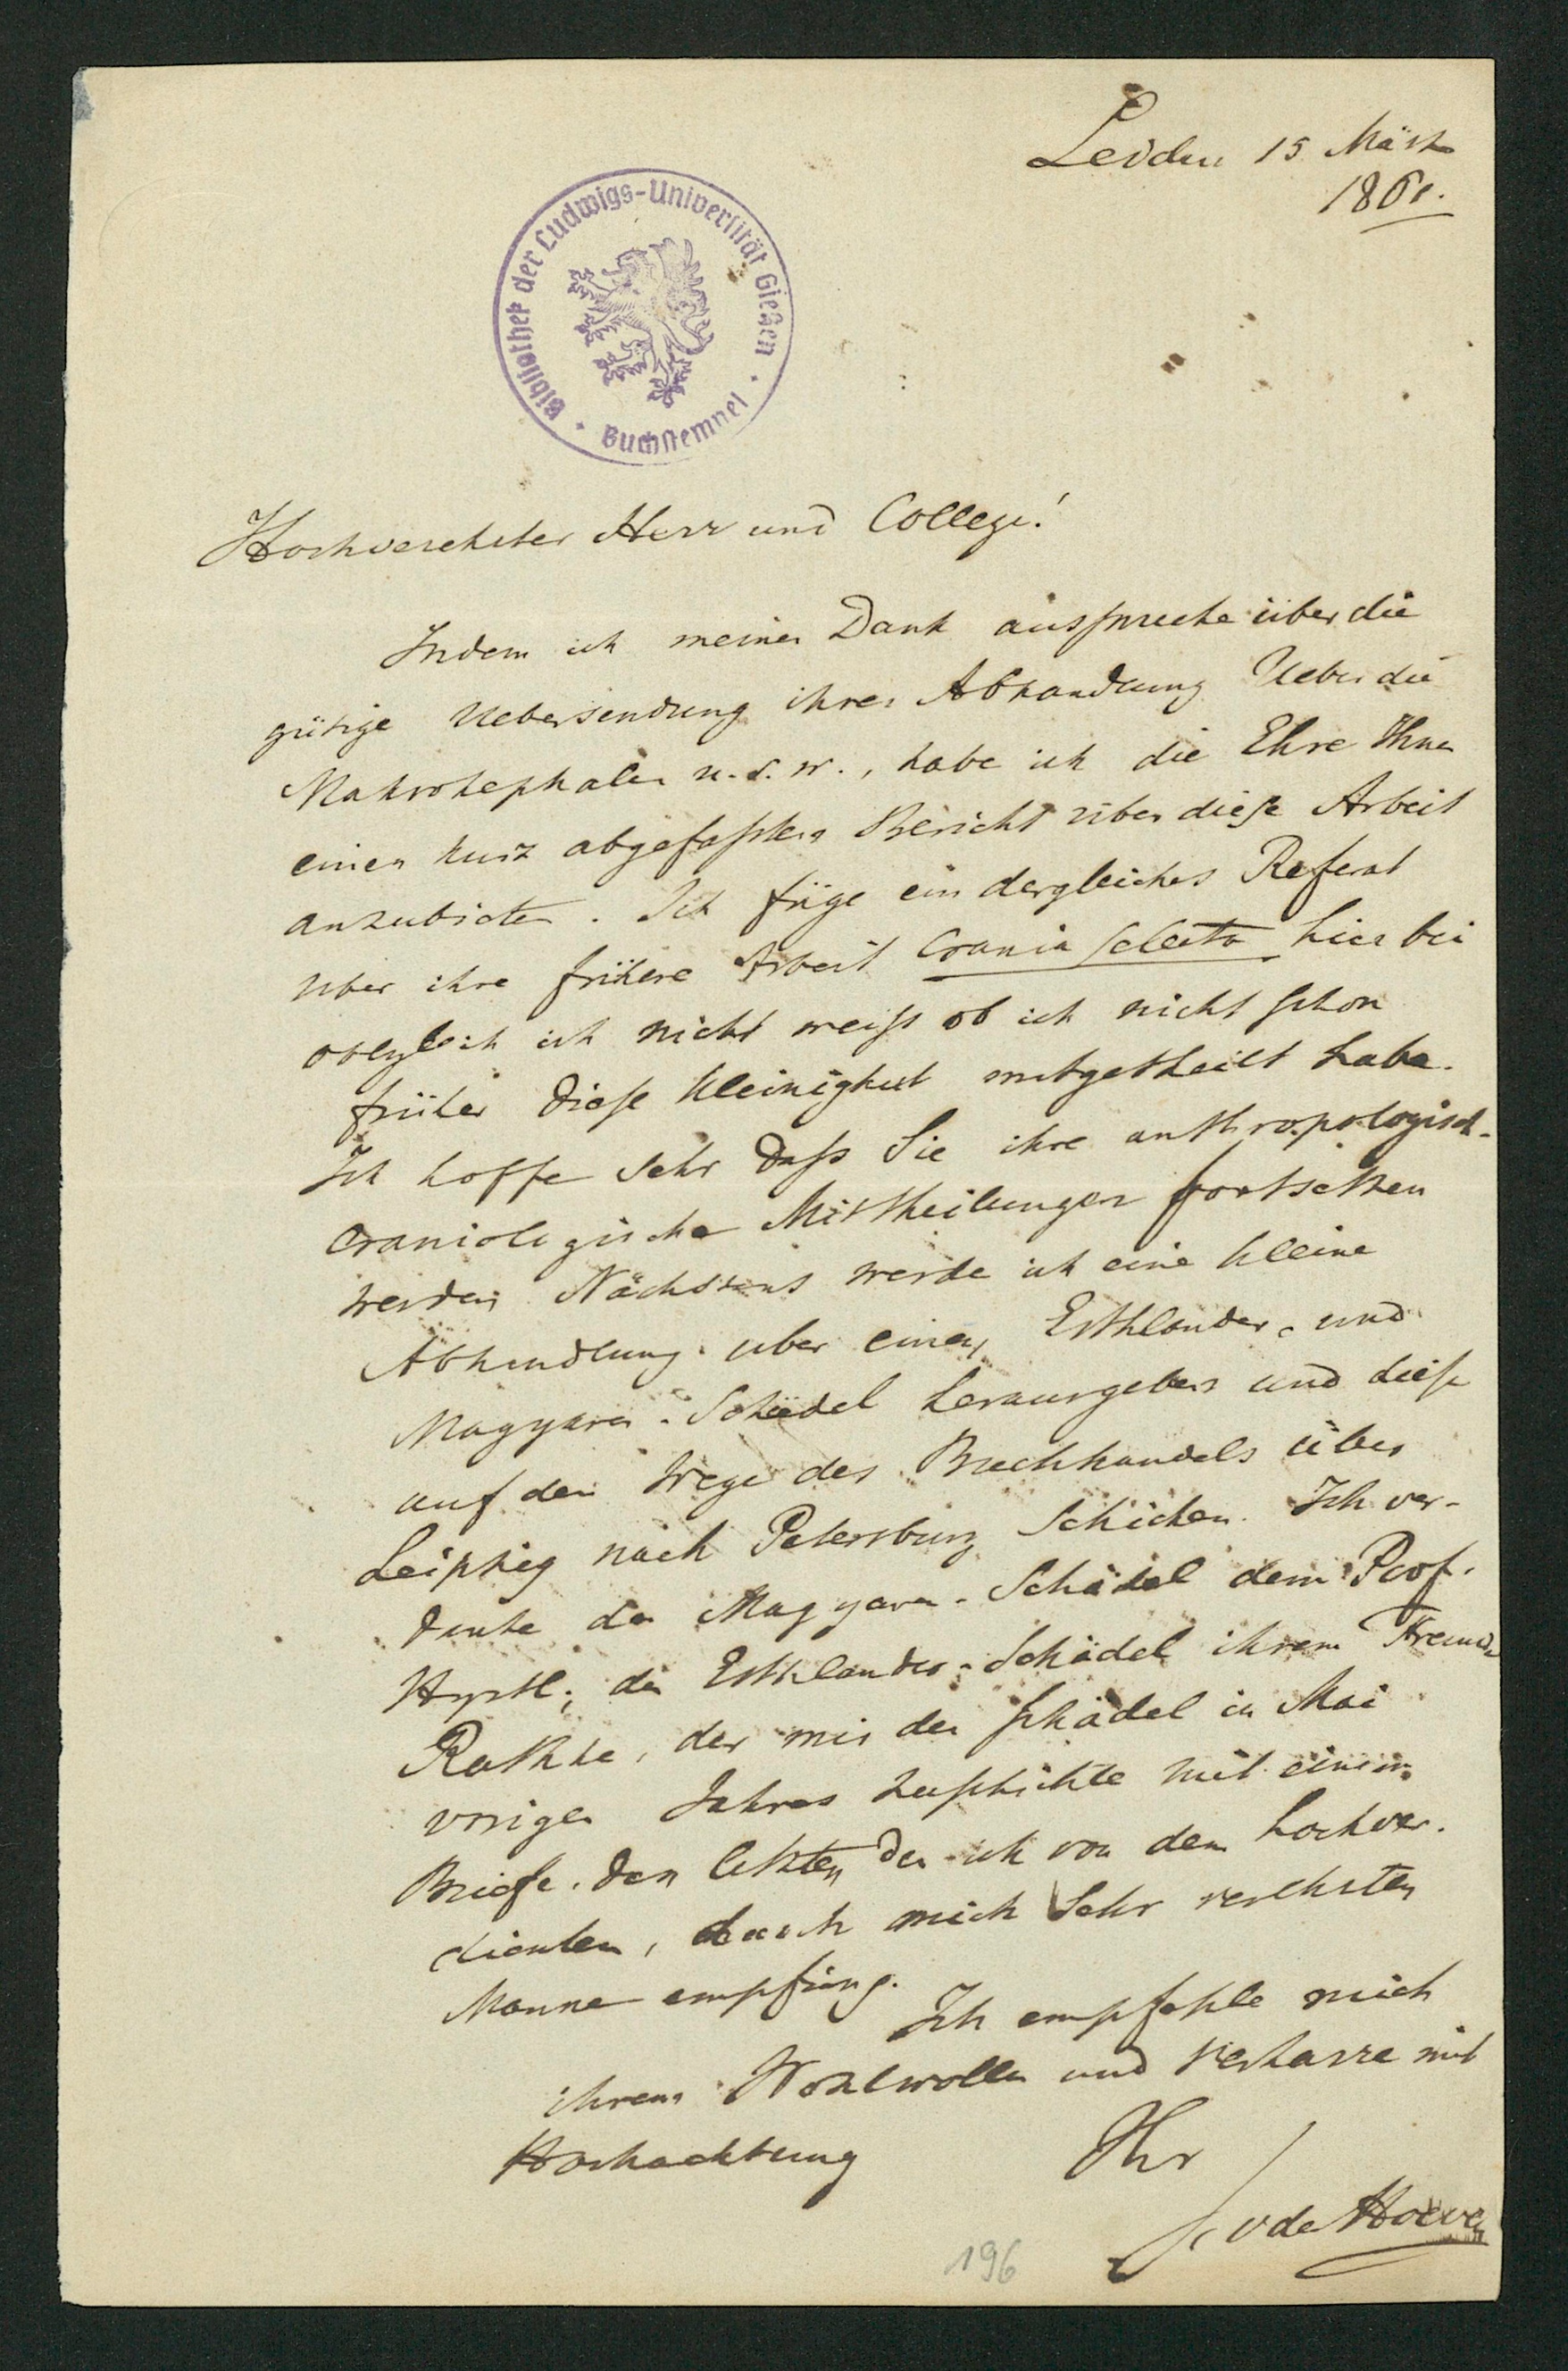 Leiden 15 März
1861.
Bibliothek der Ludwigs-Universität Gießen
Buchstempel
Hochverehrter Herr und College!
Indem ich meinen Dank ausspreche über die
gütige Uebersendung ihrer Abhandlung Ueber die
Makrokephalen u.s.w., habe ich die Ehre Ihnen
einen kurz abgefassten Bericht über diese Arbeit
anzubieten. Ich füge ein dergleiches Referat
uber ihre frühere Arbeit Crania selecta hier bei
obgleich ich nicht weiss ob ich nicht schon
früher diese Kleinigkeit mitgetheilt habe.
Ich hoffe sehr dass Sie ihre anthropologisch-
craniologische Mittheilungen fortsetzen
werden. Nächstens werde ich eine kleine
Abhandlung uber einen Esthlander- und
Magyaren-Schädel herausgeben und diese
auf den Wege des Buchhandels über
Leipzig nach Petersburg schicken. Ich ver-
danke den Magyaren-Schädel dem Prof.
Hyrtl; den Esthlander-Schädel ihrem Freunde
Rathke, der mir den Schädel in Mai
vorigen Jahres zuschickte mit einem
Briefe, den letzten den ich von dem hochver-
dienten, durch mich sehr verehrten
Manne empfing.
Ich empfehle mich
ihrem Wohlwollen und verharre mit
Hochachtung
Ihr
J. v de Hoeven
196